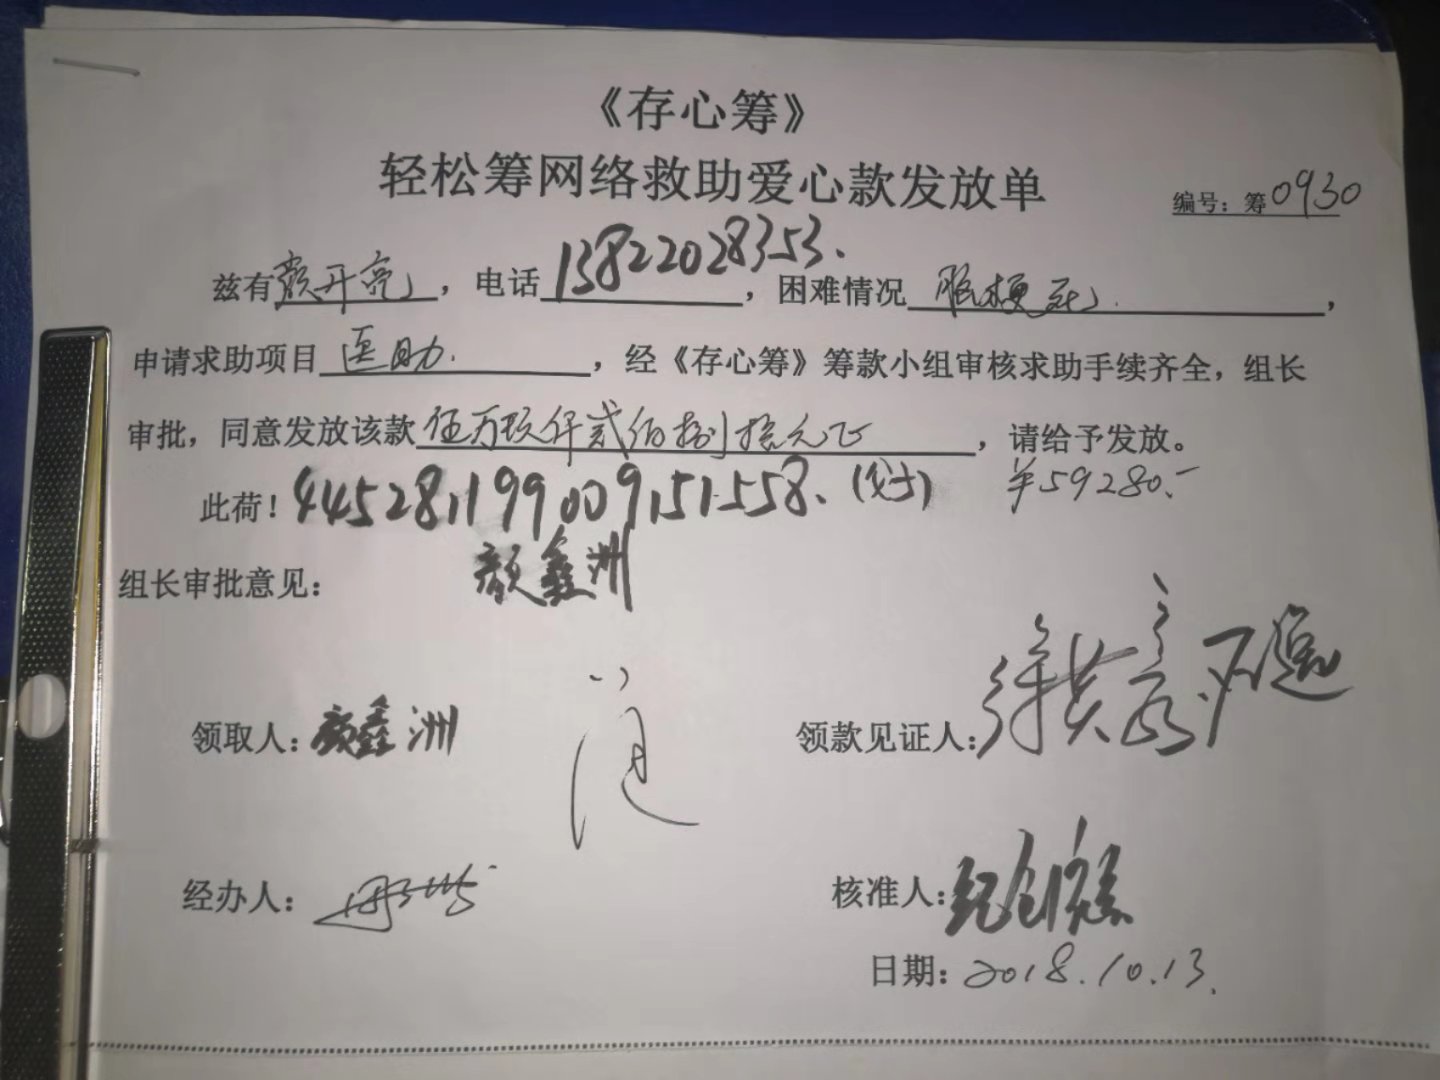 《存心筹》
轻松筹网络救助爱心款发放单
编号：筹0930
兹有颜开亮，电话13822028353.，困难情况脑梗死，
申请求助项目医助.，经《存心筹》筹款小组审核求助手续齐全，组长
审批，同意发放该款伍万玖仟贰佰捌拾元正，请给予发放。
此荷！445281199009151558. ￥59280.-
组长审批意见： 颜鑫洲
领取人：颜鑫洲 领款见证人：
经办人： 核准人：
日期：2018.10.13.